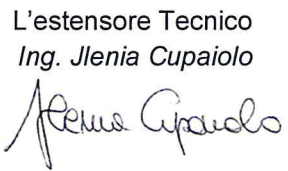 L'estensore Tecnico
Ing. Jlenia Cupaiolo
Jlenia Cupaiolo